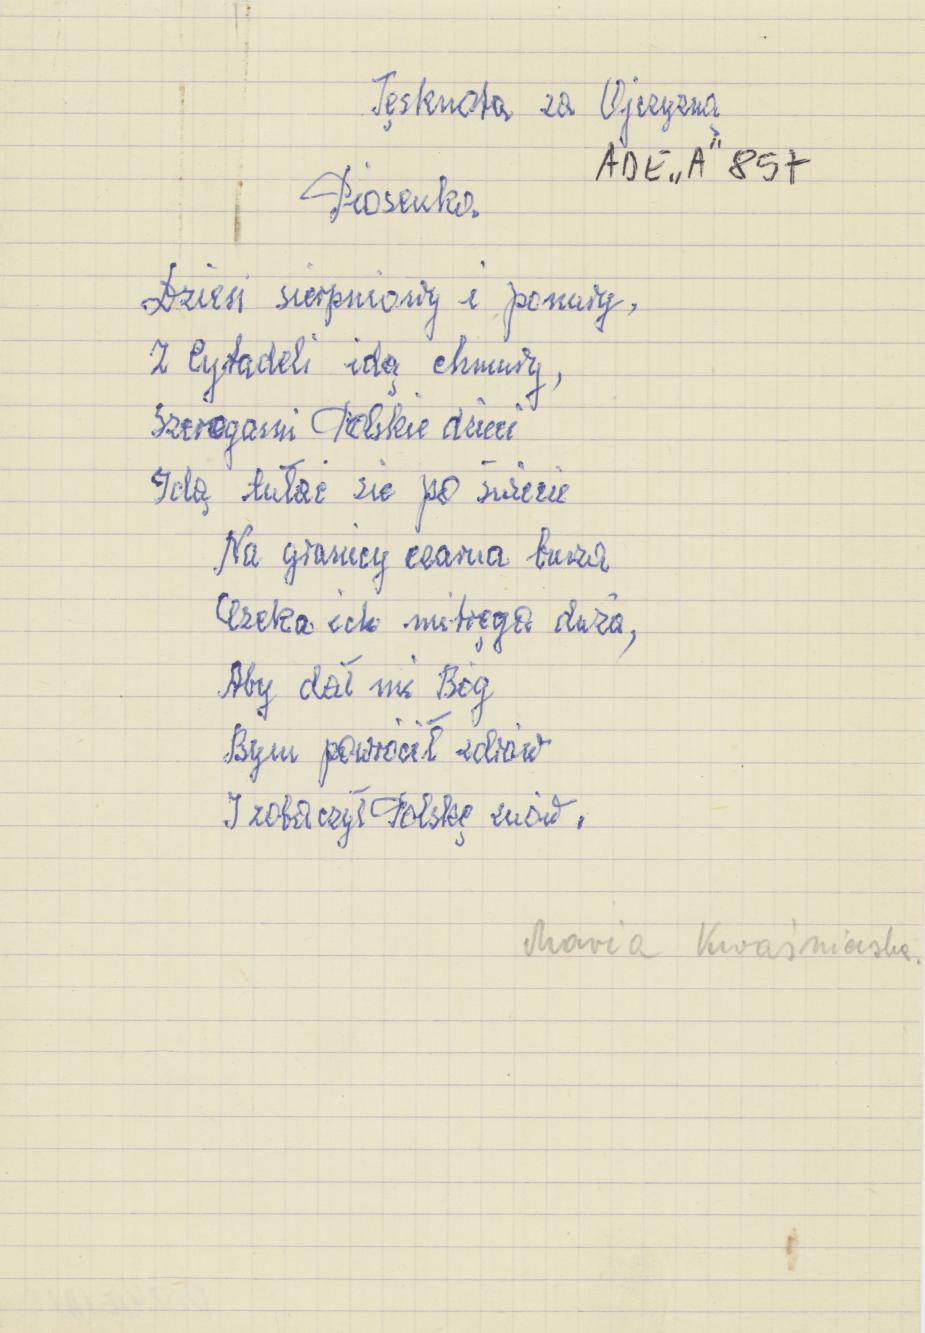 Tęsknota za Ojczyzną
ADE „A" 857
Piosenka.
Dzień sierpniowy i ponury,
Z Cytadeli idą chmury,
Szeregami Polskie dzieci
Idą tułać sie po świecie
Na granicy czarna burza
Czeka ich mitręga duża,
Aby dał mi Bóg
Bym powrócił zdrów
I zobaczył Polskę znów.
Maria Kwaśniewska.